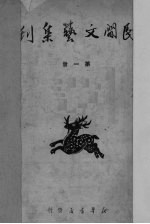 民間文藝集刊
第一册